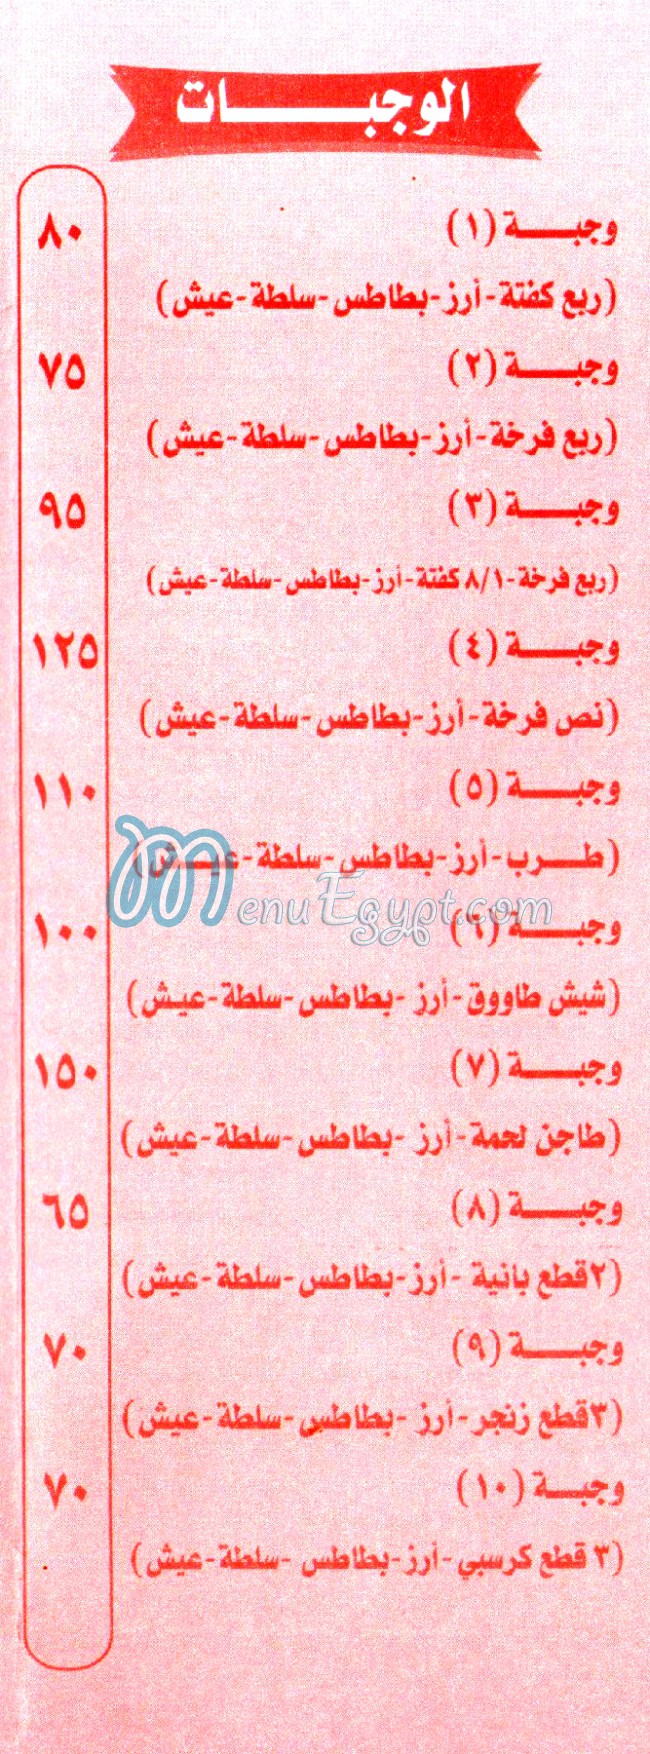 الوجبات
وجبة (١) ٨٠
(ربع كفتة-أرز-بطاطس-سلطة-عيش)
وجبة (٢) ٧٥
(ربع فرخة-أرز-بطاطس-سلطة-عيش)
وجبة (٣) ٩٥
(ربع فرخة-٨/١ كفتة-أرز-بطاطس-سلطة-عيش)
وجبة (٤) ١٢٥
(نص فرخة-أرز-بطاطس-سلطة-عيش)
وجبة (٥) ١١٠
(طرب-أرز-بطاطس-سلطة-عيش)
MenuEgypt.com
وجبة (٦) ١٠٠
(شيش طاووق-أرز-بطاطس-سلطة-عيش)
وجبة (٧) ١٥٠
(طاجن لحمة-أرز-بطاطس-سلطة-عيش)
وجبة (٨) ٦٥
(٢قطع بانية-أرز-بطاطس-سلطة-عيش)
وجبة (٩) ٧٠
(٣قطع زنجر-أرز-بطاطس-سلطة-عيش)
وجبة (١٠) ٧٠
(٣ قطع كرسبي-أرز-بطاطس-سلطة-عيش)